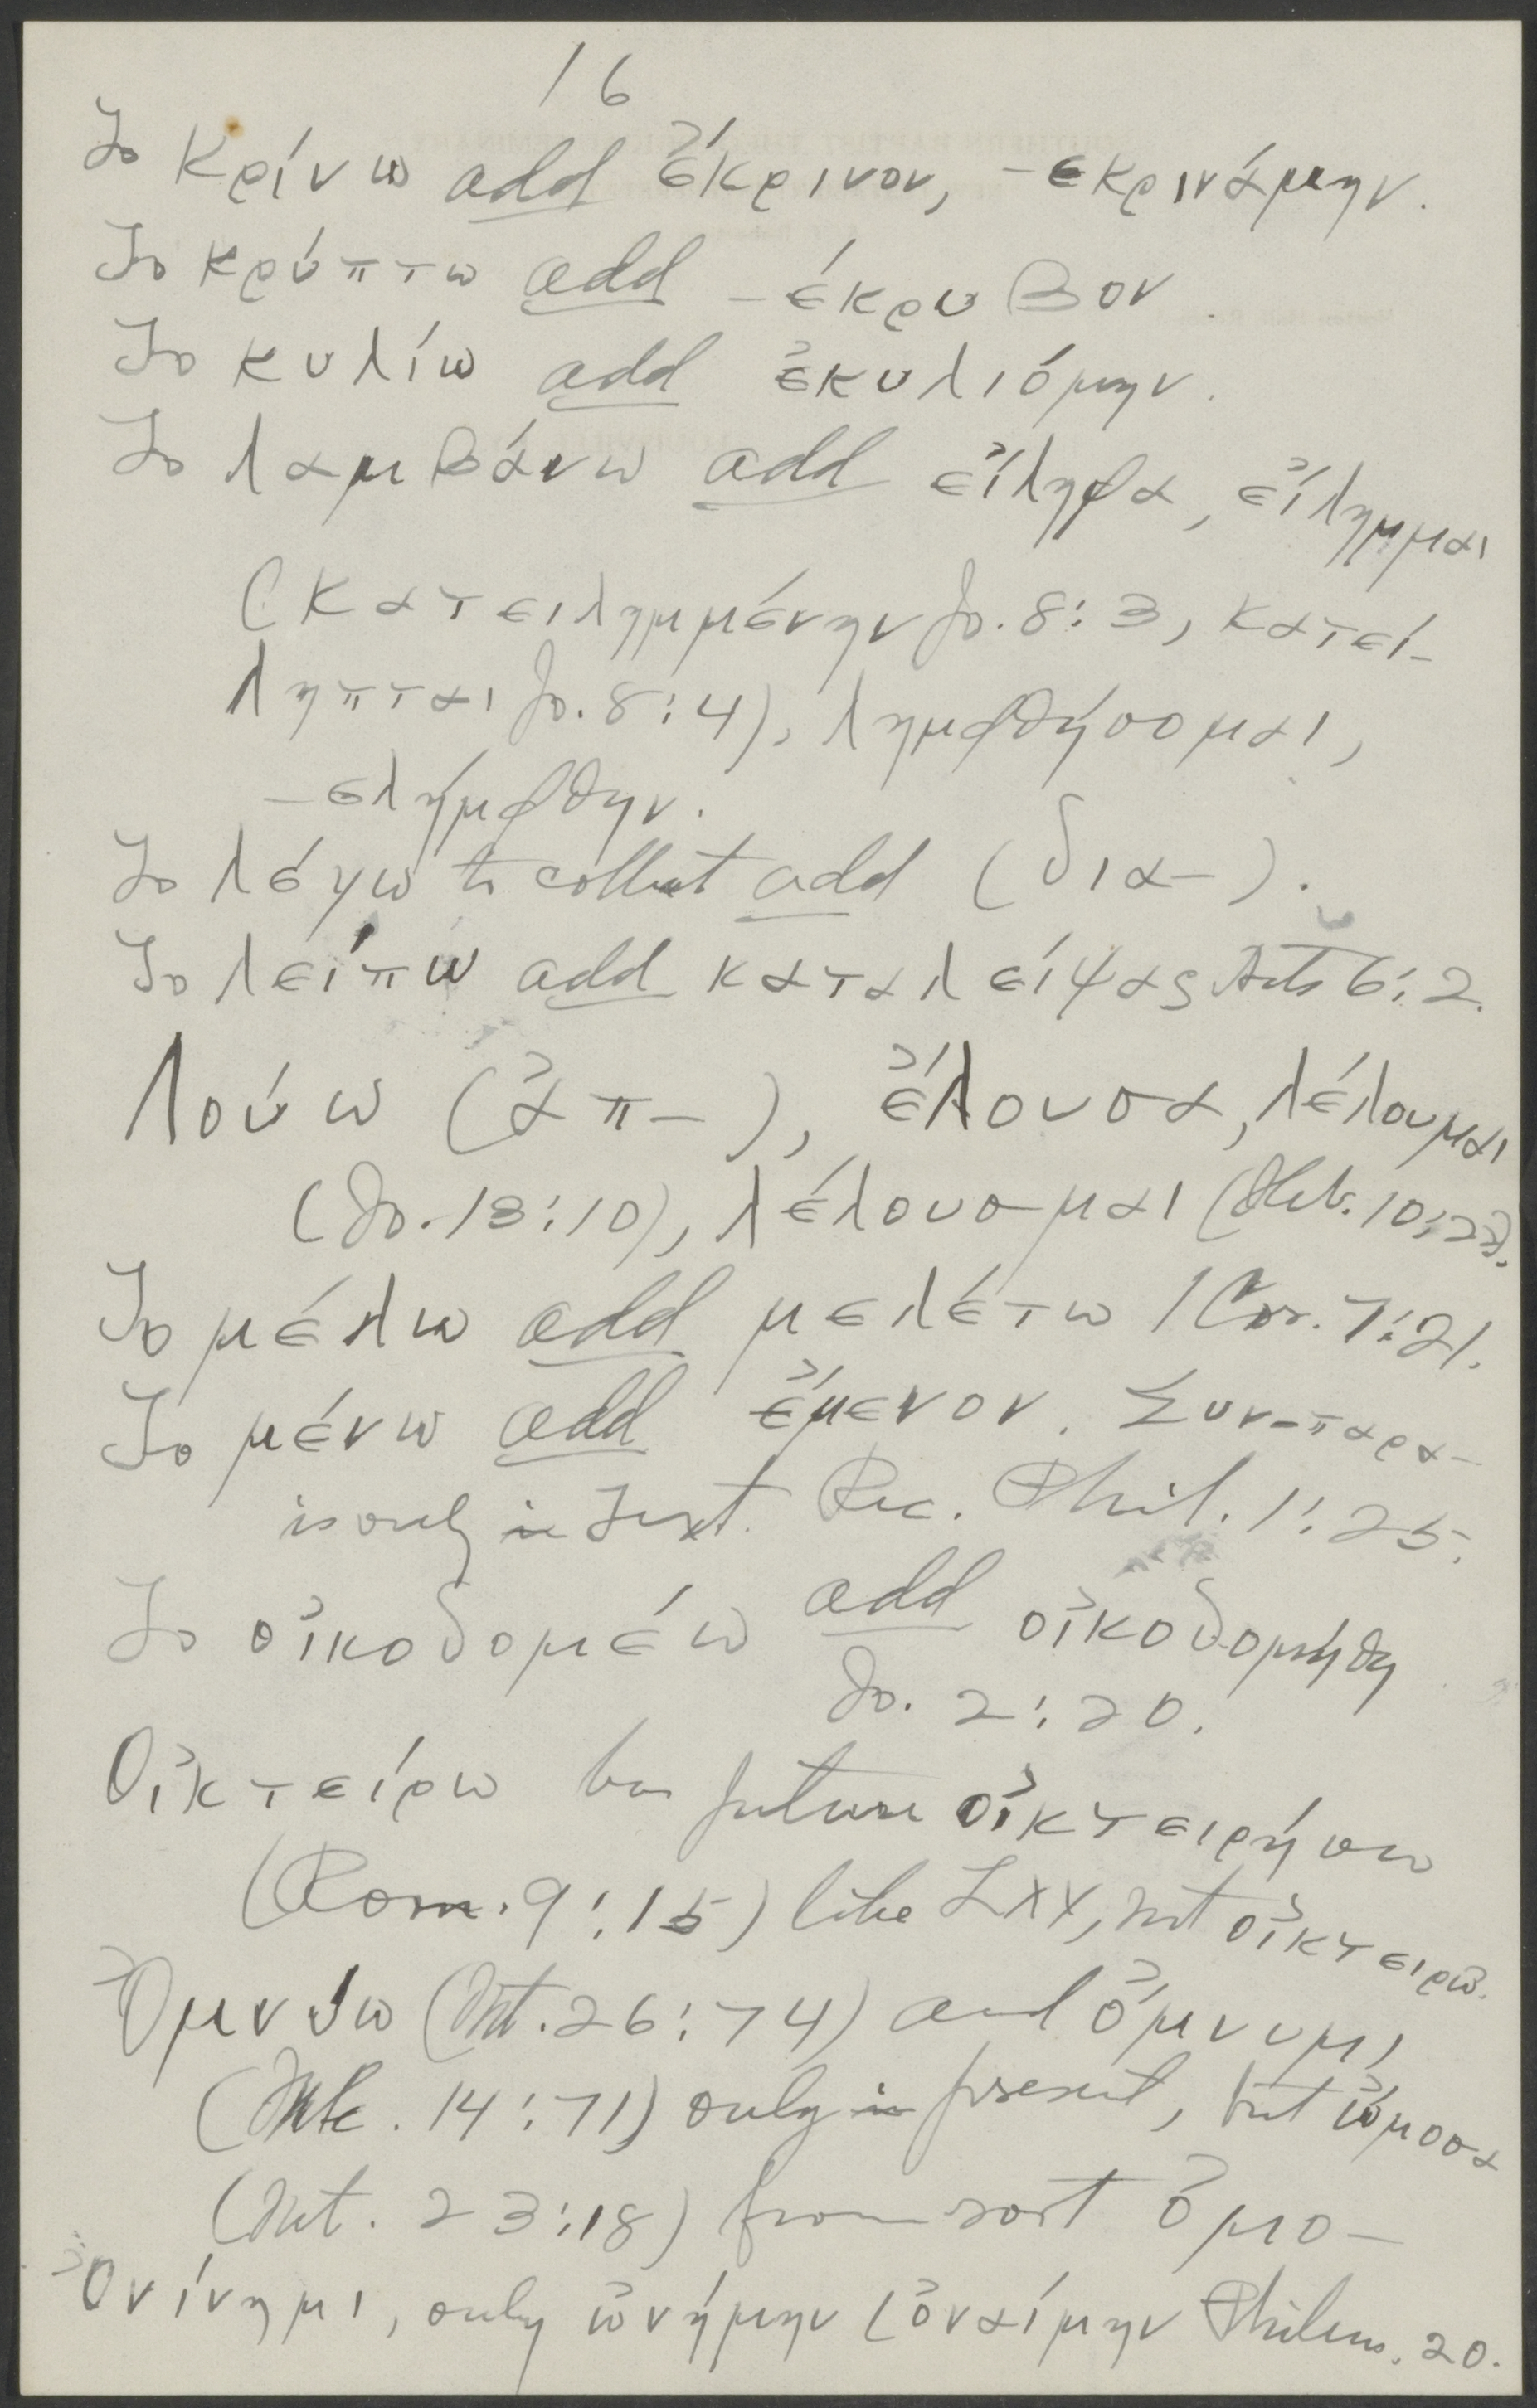 16
To κρίνω add ἔκρινον, -εκρινάμην.
To κρύπτω add -έκρυβον.
To κυλίω add ἐκυλιόμην.
To λαμβάνω add εἴληφα, εἴλημμαι
(κατειλημμένην Jo. 8:3, κατεί-
ληπται Jo. 8:4), λημφθήσομαι,
-ελήμφθην.
To λέγω to collect add (δια-).
To λείπω add καταλείψας Acts 6:2.
Λούω (ἀπ-), ἔλουσα, λέλουμαι
(Jo. 13:10), λέλουσμαι (Heb. 10:22).
To μέλω add μελέτω 1 Cor. 7:21.
To μένω add ἔμενον. Συν-παρα-
is only in Text. Rec. Phil. 1:25.
To οἰκοδομέω add οἰκοδομήθη
Jo. 2:20.
Οἰκτείρω has future οἰκτειρήσω
(Rom. 9:15) like LXX, not οἰκτειρῶ.
Ὀμνύω (Mt. 26:74) and ὄμνυμι
(Mk. 14:71) only in present, but ὤμοσα
(Mt. 23:18) from root ὀμο-
Ὀνίνημι, only ὠνήμην (ὀναίμην Philem. 20.